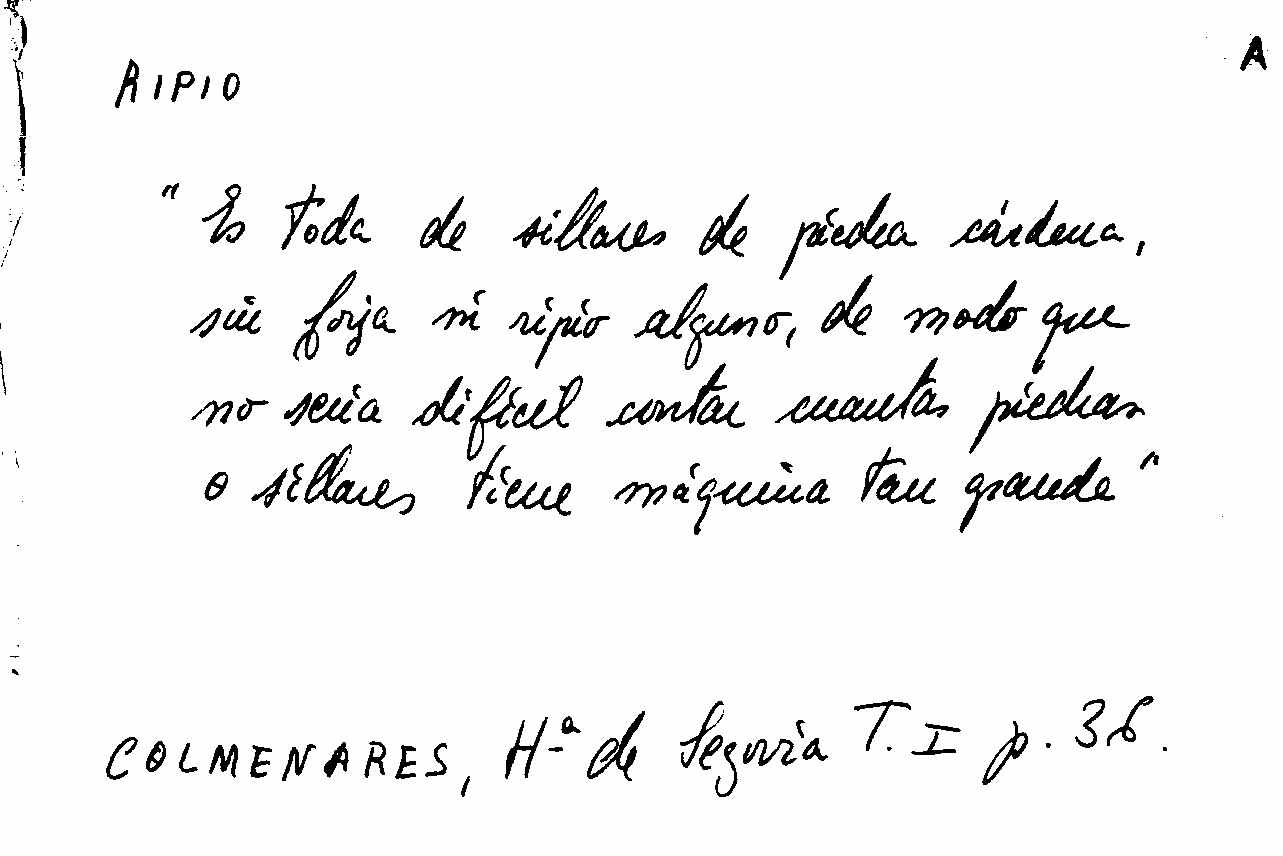 RIPIO
A
"Es toda de sillares de piedra cárdena,
sin forja ni ripio alguno, de modo que
no seria dificil contar cuantas piedras
o sillares tiene máquina tan grande"
COLMENARES, Hª de Segovia T. I p. 36.